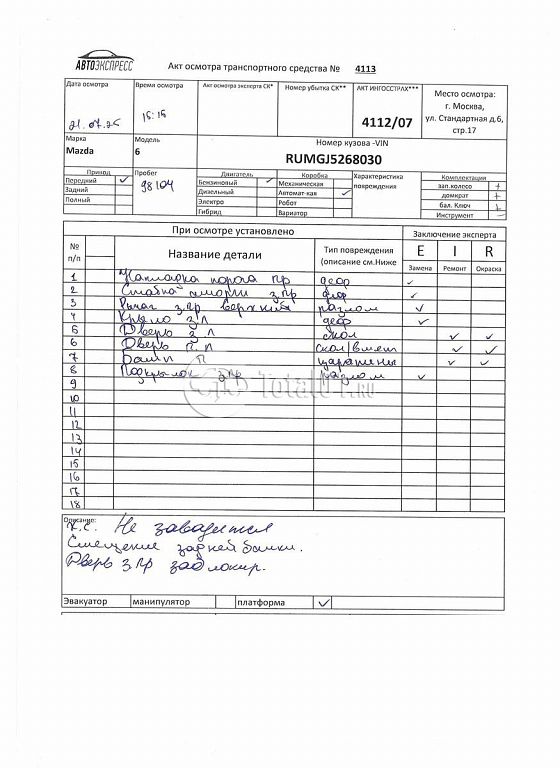 АВТОЭКСПРЕСС
Акт осмотра транспортного средства № 4113
Дата осмотра Время осмотра Акт осмотра эксперта СК* Номер убытка СК** АКТ ИНГОССТРАХ*** Место осмотра:
г. Москва,
ул. Стандартная д.6,
стр.17
21.07.25 15:15 4112/07
Марка Модель Номер кузова -VIN
Mazda 6 RUMGJ5268030
Привод Пробег Двигатель Коробка Характеристика повреждения Комплектация
Передний ✓ 98104 Бензиновый ✓ Механическая зап.колесо +
Задний Дизельный Автомат-кая ✓ домкрат +
Полный Электро Робот бал. Ключ +
Гибрид Вариатор Инструмент
При осмотре установлено Заключение эксперта
№ п/п Название детали Тип повреждения (описание см.Ниже E I R
Замена Ремонт Окраска
1 Накладка порога пр деф ✓
2 з.пр деф ✓
3 Рычаг з.пр верхний разлом ✓
4 Крыло з л деф ✓
5 Дверь з л скол ✓ ✓
6 Дверь п.п скол/вмят ✓ ✓
7 Бамп П царапины ✓ ✓
8 Подкрылок з пр разлом ✓
9
10
11
12
13
14
15
16
17
18
Total01.ru
Описание:
Не заводится
Смещение задней балки.
Дверь з.пр заблокир.
Эвакуатор манипулятор платформа ✓